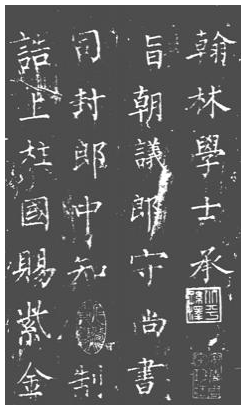 翰林學士承
旨朝議郎守尚書
司封郎中知制
誥上柱國賜紫金